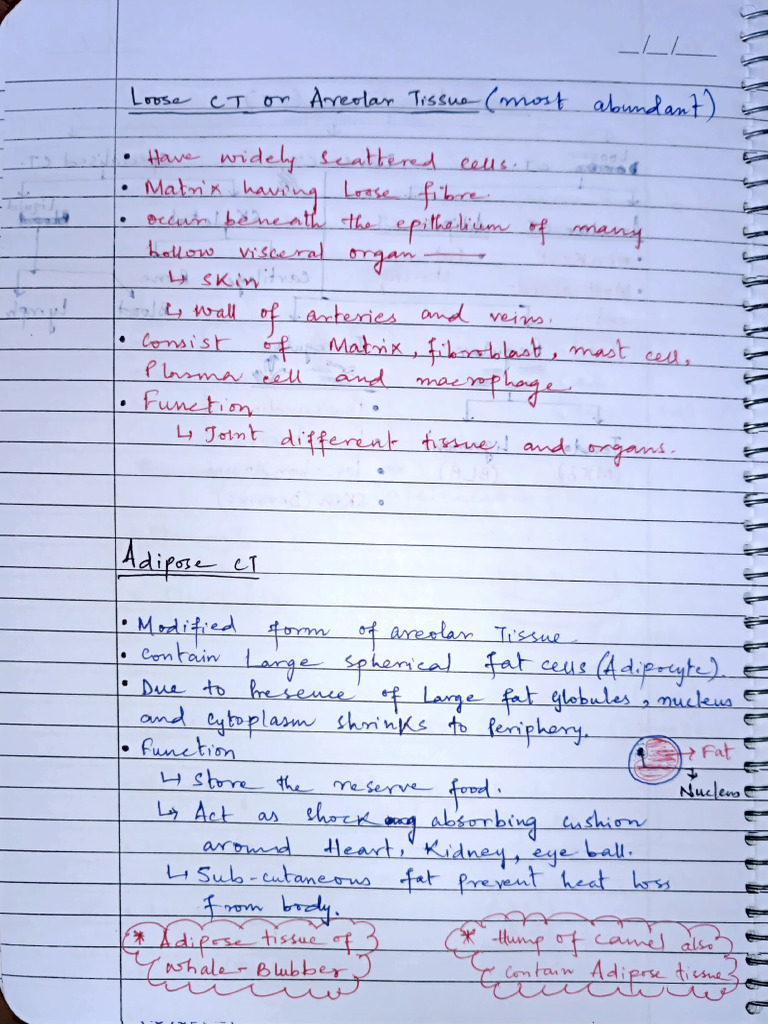 _/_/__
Loose CT or Areolar Tissue (most abundant)
• Have widely scattered cells.
• Matrix having Loose fibre.
• occur beneath the epithelium of many
hollow visceral organ —
↳ SKIN
↳ wall of arteries and veins.
• Consist of Matrix, fibroblast, mast cell,
Plasma cell and macrophage.
• Function
↳ Joint different tissue and organs.
Adipose CT
• Modified form of areolar Tissue.
• Contain Large spherical fat cells (Adipocyte).
• Due to Presence of Large fat globules, nucleus
and cytoplasm shrinks to Periphery.
• Function
→ Fat
↳ Store the reserve food.
Nucleus
↳ Act as shock absorbing cushion
around Heart, Kidney, eye ball.
↳ Sub-cutaneous fat prevent heat loss
from body.
* Adipose tissue of
whale - Blubber
* Hump of camel also
contain Adipose tissue